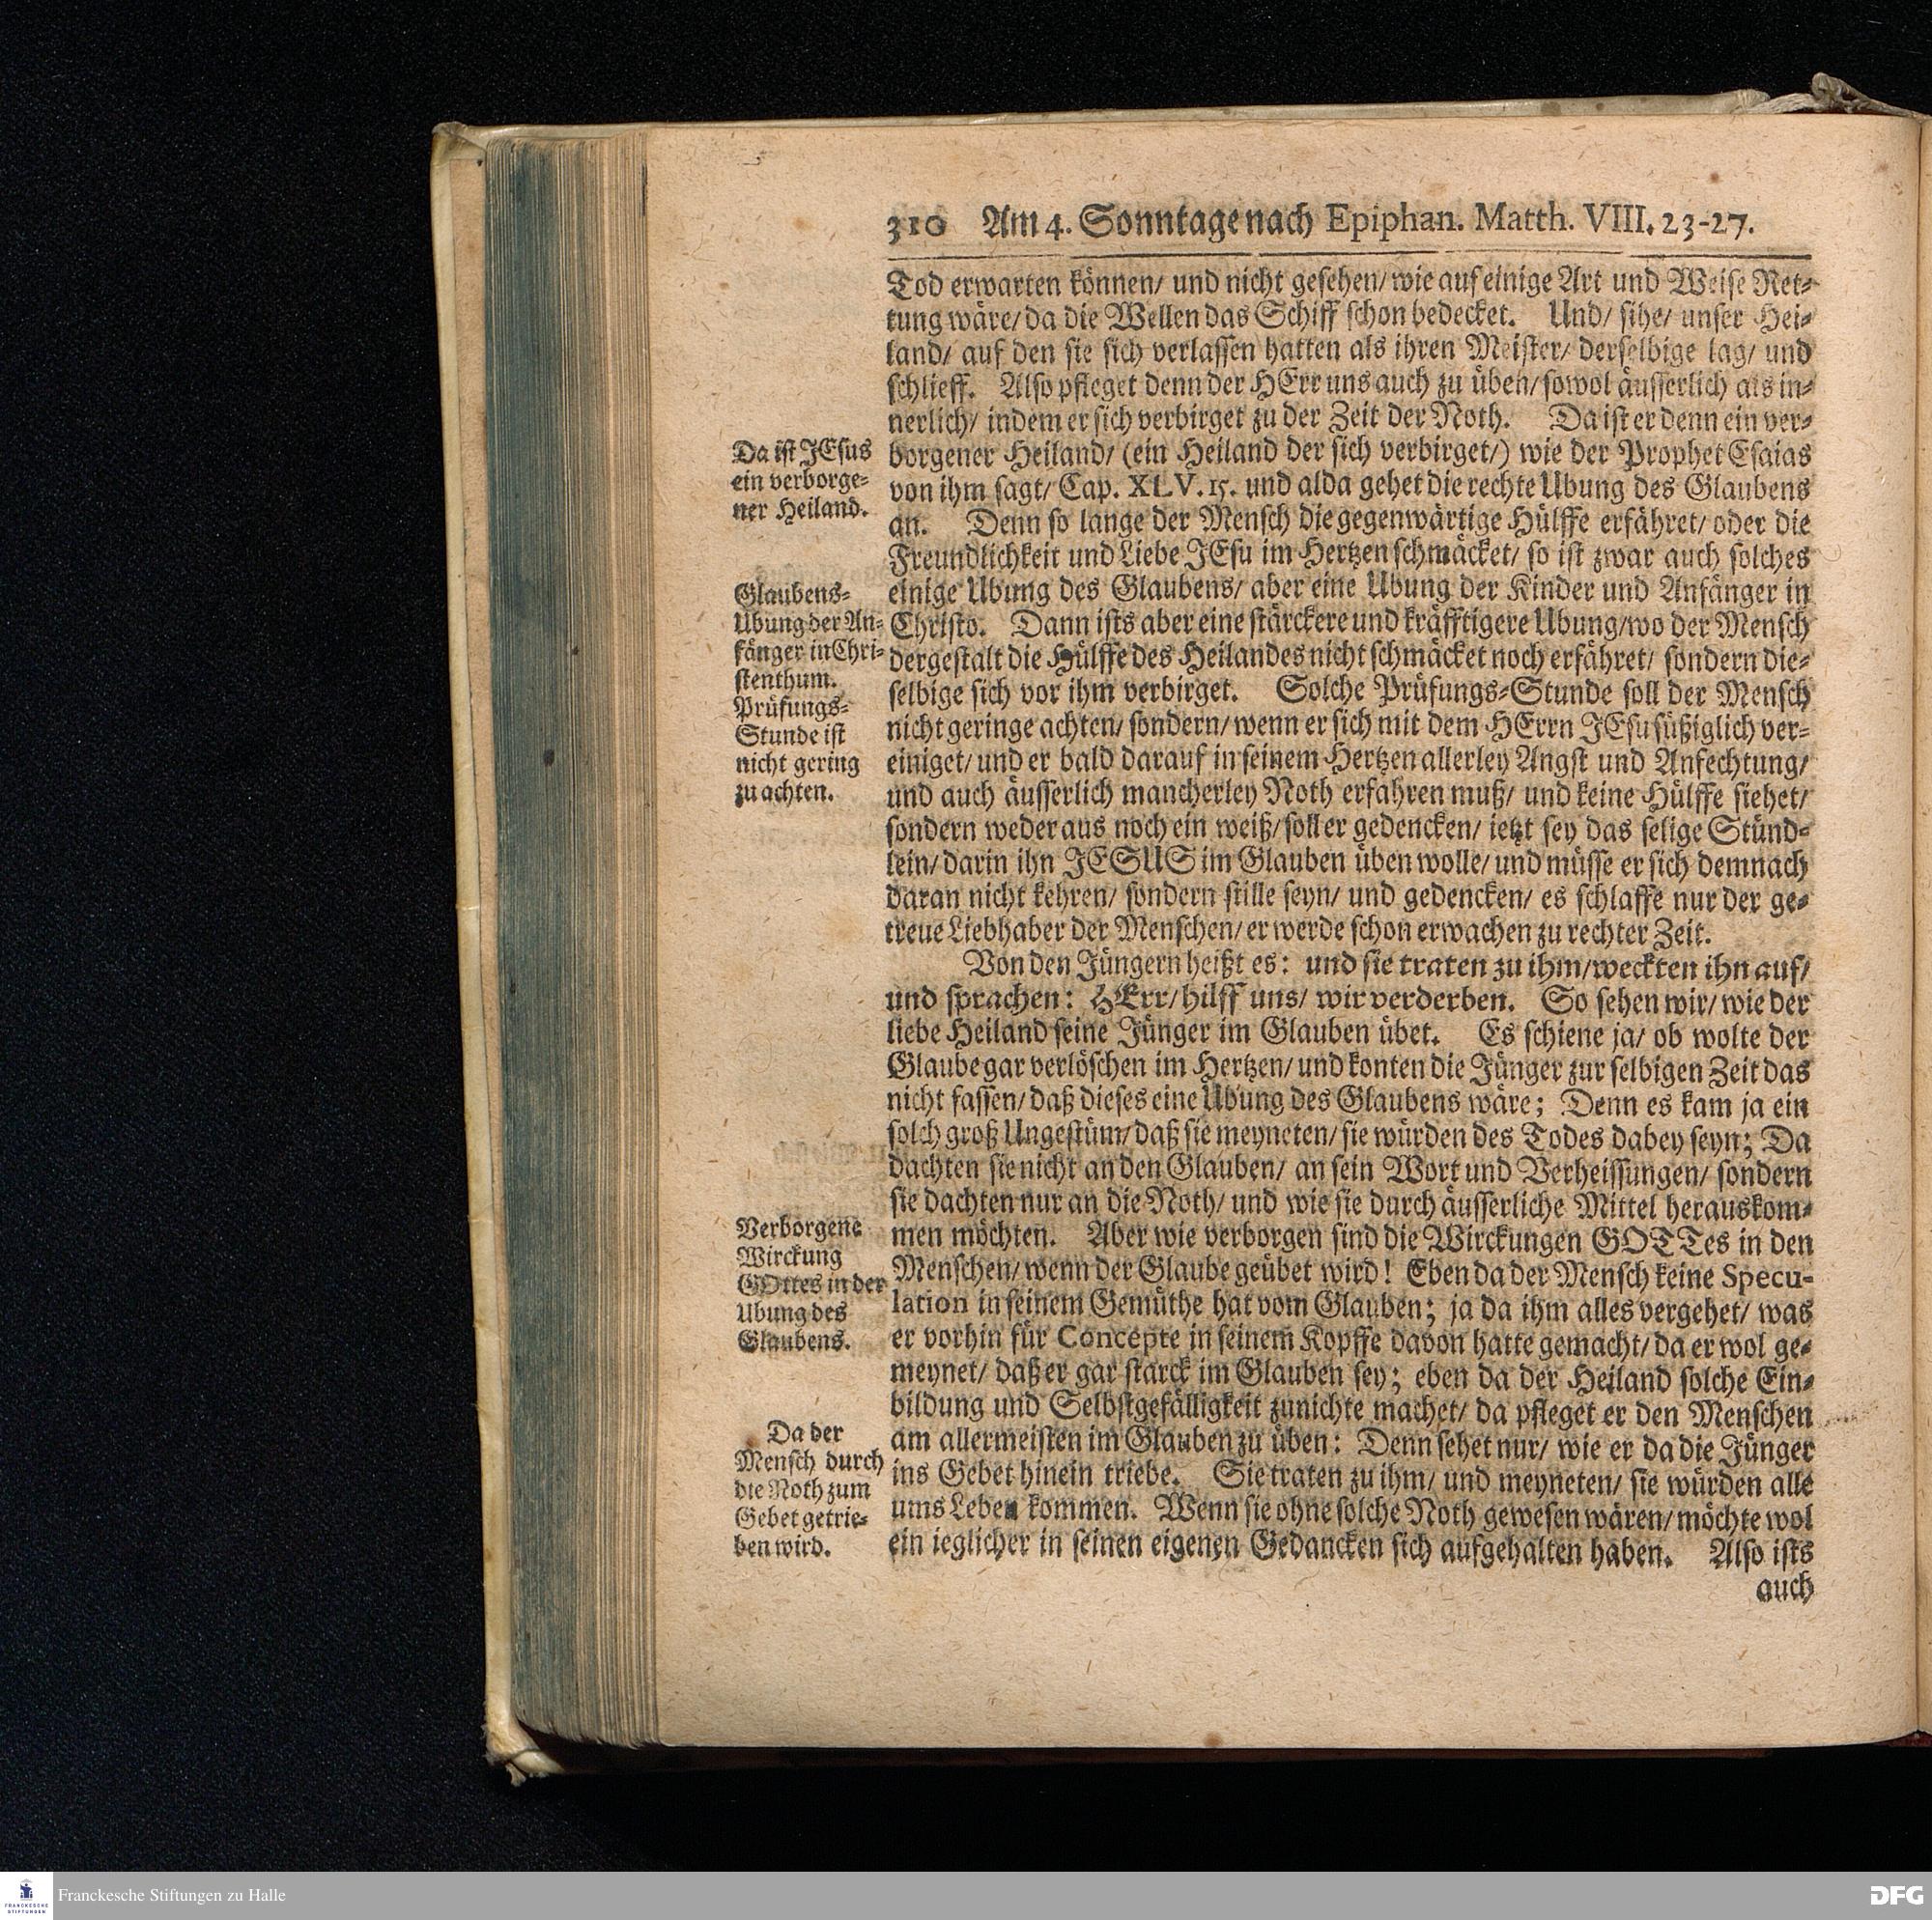 310 Am 4. Sonntage nach Epiphan. Matth. VIII. 23-27.
Tod erwarten können/ und nicht gesehen/ wie auf einige Art und Weise Ret-
tung wäre/ da die Wellen das Schiff schon bedecket. Und/ sihe/ unser Hei-
land/ auf den sie sich verlassen hatten als ihren Meister/ derselbige lag/ und
schlieff. Also pfleget denn der HErr uns auch zu üben/ sowol äusserlich als in-
nerlich/ indem er sich verbirget zu der Zeit der Noth. Da ist er denn ein ver-
borgener Heiland/ (ein Heiland der sich verbirget/) wie der Prophet Esaias
von ihm sagt/ Cap. XLV. 15. und alda gehet die rechte Ubung des Glaubens
an. Denn so lange der Mensch die gegenwärtige Hülffe erfähret/ oder die
Freundlichkeit und Liebe JEsu im Hertzen schmäcket/ so ist zwar auch solches
einige Ubung des Glaubens/ aber eine Ubung der Kinder und Anfänger in
Christo. Dann ists aber eine stärckere und kräfftigere Ubung/ wo der Mensch
dergestalt die Hülffe des Heilandes nicht schmäcket noch erfähret/ sondern die-
selbige sich vor ihm verbirget. Solche Prüfungs-Stunde soll der Mensch
nicht geringe achten/ sondern/ wenn er sich mit dem HErrn JEsu süßiglich ver-
einiget/ und er bald darauf in seinem Hertzen allerley Angst und Anfechtung/
und auch äusserlich mancherley Noth erfahren muß/ und keine Hülffe siehet/
sondern weder aus noch ein weiß/ soll er gedencken/ ietzt sey das selige Stünd-
lein/ darin ihn JESUS im Glauben üben wolle/ und müsse er sich demnach
daran nicht kehren/ sondern stille seyn/ und gedencken/ es schlaffe nur der ge-
treue Liebhaber der Menschen/ er werde schon erwachen zu rechter Zeit.
Von den Jüngern heißt es: und sie traten zu ihm/ weckten ihn auf/
und sprachen: HErr/ hilff uns/ wir verderben. So sehen wir/ wie der
liebe Heiland seine Jünger im Glauben übet. Es schiene ja/ ob wolte der
Glaube gar verlöschen im Hertzen/ und konten die Jünger zur selbigen Zeit das
nicht fassen/ daß dieses eine Ubung des Glaubens wäre; Denn es kam ja ein
solch groß Ungestüm/ daß sie meyneten/ sie würden des Todes dabey seyn; Da
dachten sie nicht an den Glauben/ an sein Wort und Verheissungen/ sondern
sie dachten nur an die Noth/ und wie sie durch äusserliche Mittel herauskom-
men möchten. Aber wie verborgen sind die Wirckungen GOTTes in den
Menschen/ wenn der Glaube geübet wird! Eben da der Mensch keine Specu-
lation in seinem Gemüthe hat vom Glauben; ja da ihm alles vergehet/ was
er vorhin für Concepte in seinem Kopffe davon hatte gemacht/ da er wol ge-
meynet/ daß er gar starck im Glauben sey; eben da der Heiland solche Ein-
bildung und Selbstgefälligkeit zunichte machet/ da pfleget er den Menschen
am allermeisten im Glauben zu üben: Denn sehet nur/ wie er da die Jünger
ins Gebet hinein triebe. Sie traten zu ihm/ und meyneten/ sie würden alle
ums Leben kommen. Wenn sie ohne solche Noth gewesen wären/ möchte wol
ein ieglicher in seinen eigenen Gedancken sich aufgehalten haben. Also ists
auch
Da ist JEsus
ein verborge-
ner Heiland.
Glaubens-
Ubung der An-
fänger in Chri-
stenthum.
Prüfungs-
Stunde ist
nicht gering
zu achten.
Verborgene
Wirckung
GOttes in der
Ubung des
Glaubens.
Da der
Mensch durch
die Noth zum
Gebet getrie-
ben wird.
FRANCKESCHE
STIFTUNGEN
Franckesche Stiftungen zu Halle
DFG